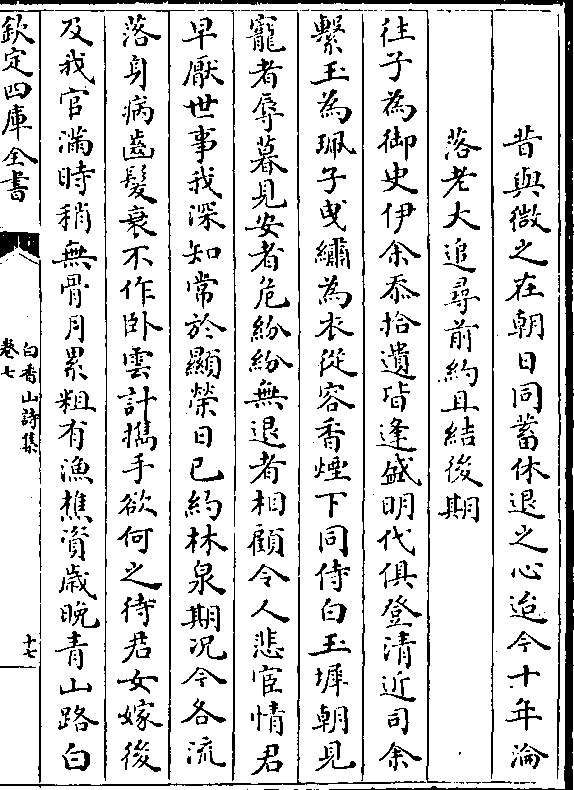 昔與微之在朝日同蓄休退之心迨今十年淪
落老大追尋前約且結後期
往子為御史伊余忝拾遺皆逢盛明代俱登清近司余
繫玉為珮子曵繡為衣從容香煙下同侍白玉墀朝見
寵者辱暮見安者危紛紛無退者相顧令人悲宦情君
早厭世事我深知常於顯榮日已約林泉期况今各流
落身病齒髮衰不作卧雲計攜手欲何之待君女嫁後
及我官滿時稍無骨月累粗有漁樵資歲晚青山路白
欽定四庫全書
白香山詩集
卷七
十七